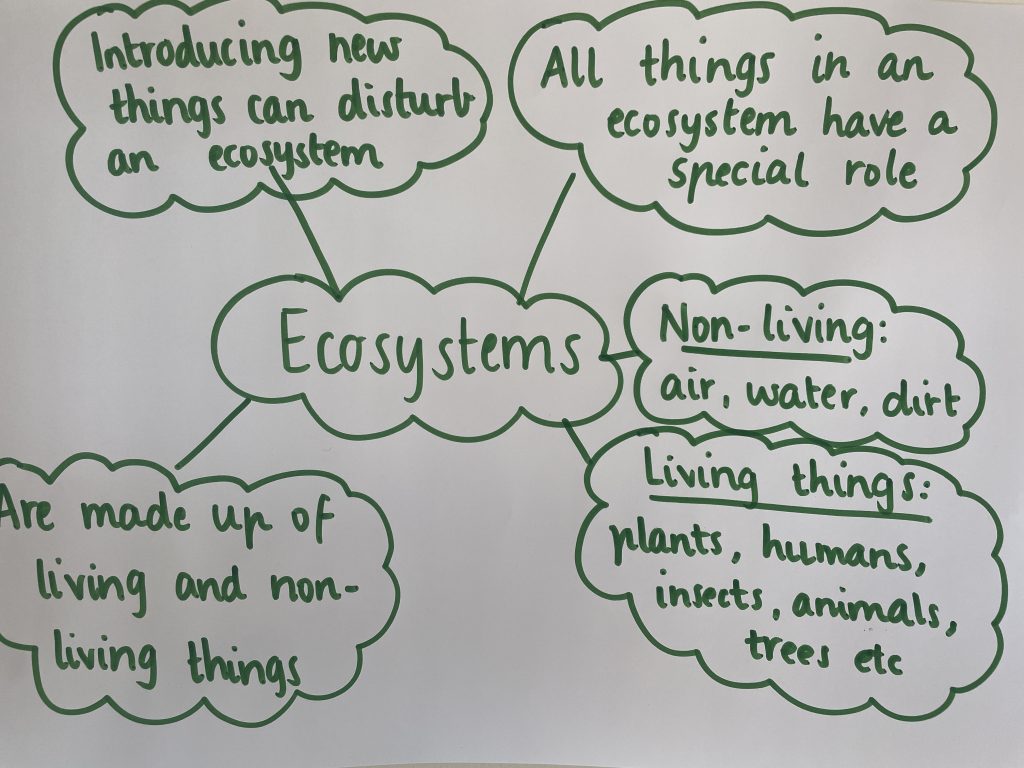 Introducing new
things can disturb
an ecosystem
All things in an
ecosystem have a
special role
Ecosystems
Non-living:
air, water, dirt
Are made up of
living and non-
living things
Living things:
plants, humans,
insects, animals,
trees etc